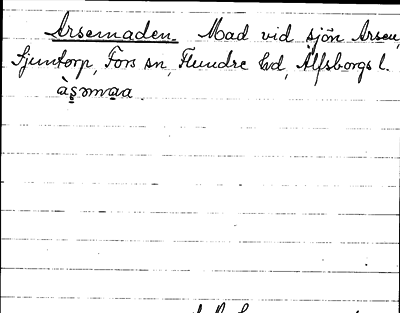 Arsemaden. Mad vid sjön Arsen,
Sjuntorp, Fors sn, Flundre hd, Älfsborgs l.
às̱əma̱a.